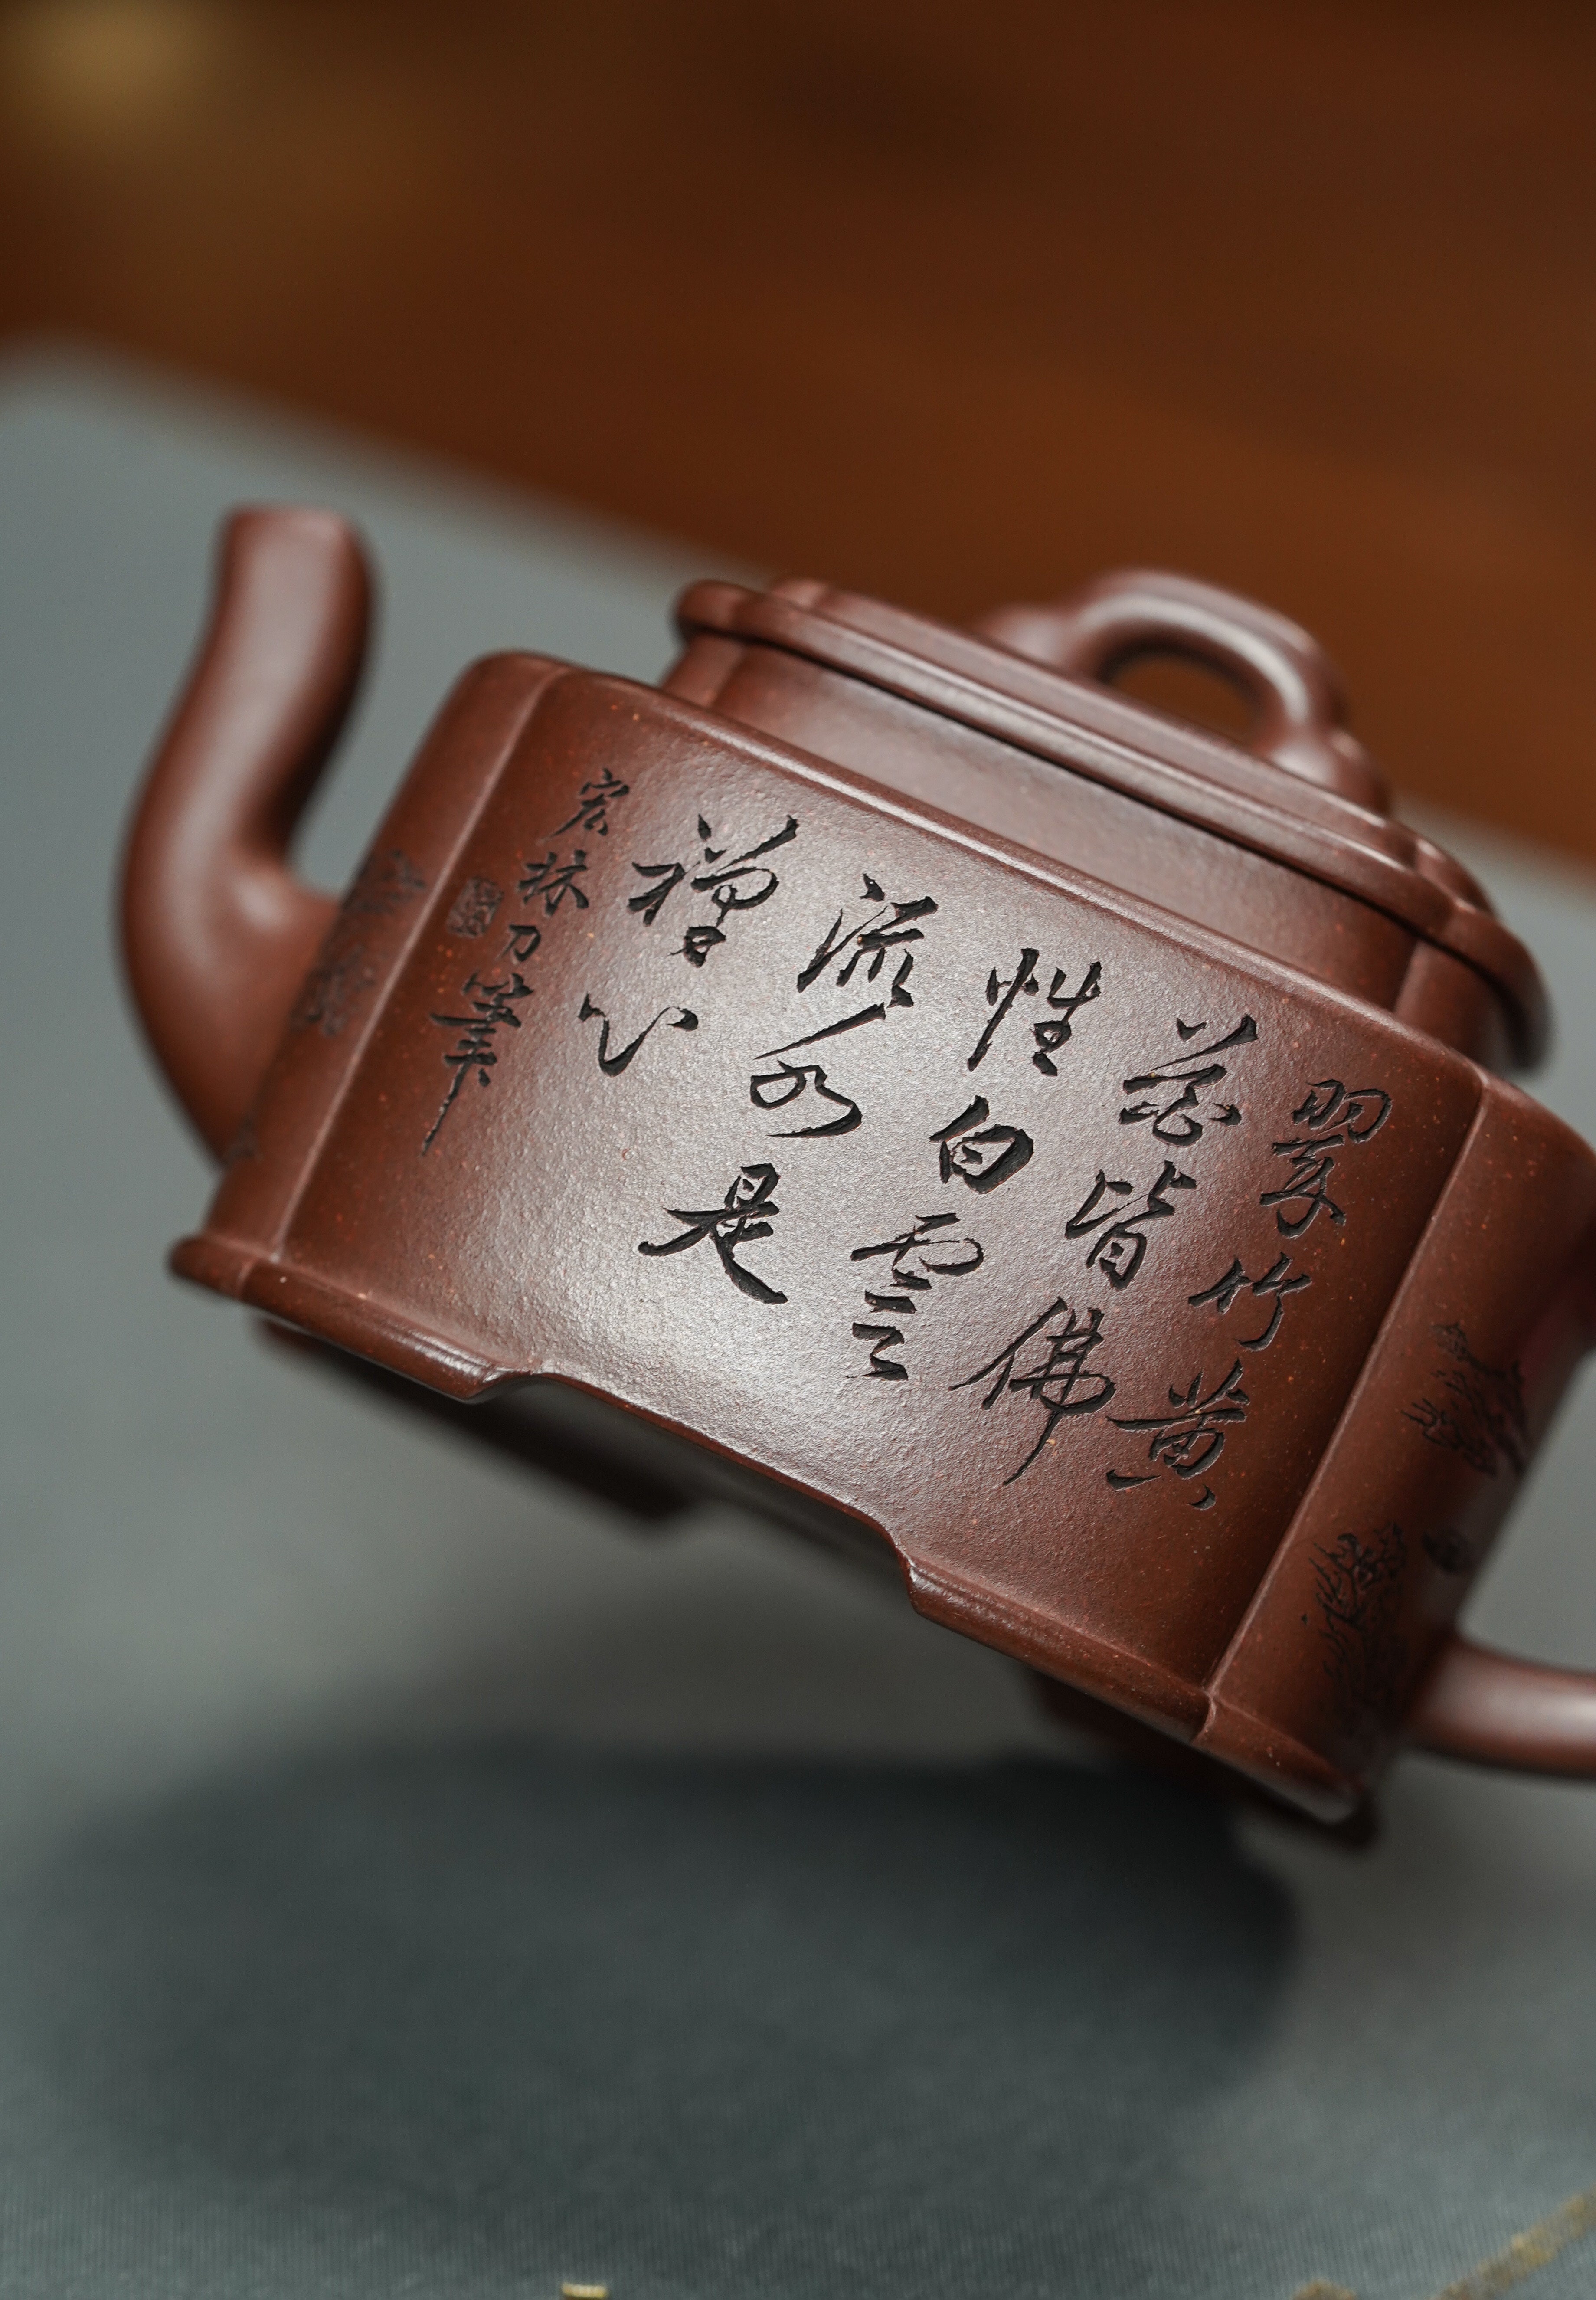 翠竹黄
花皆佛
性白云
流水是
禅心
宏林刀笔